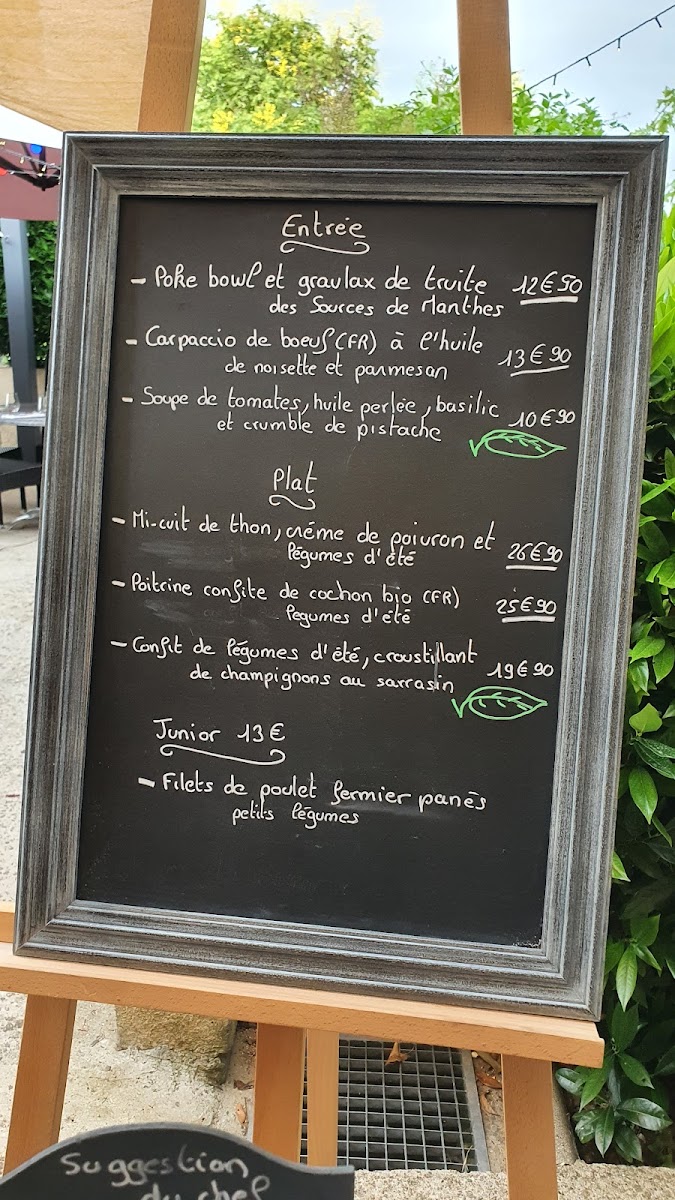 Entrée
- Poke bowl et gravlax de truite 12€50
des Sources de Manthes
- Carpaccio de boeuf (FR) à l'huile
de noisette et parmesan 13€90
- Soupe de tomates, huile perlée, basilic
et crumble de pistache 10€90
Plat
- Mi-cuit de thon, créme de poivron et
légumes d'été 26€90
- Poitrine confite de cochon bio (FR)
legumes d'été 25€90
- Confit de légumes d'été, croustillant
de champignons au sarrasin 19€90
Junior 13€
- Filets de poulet fermier panés
petits légumes
Suggestion
du chef